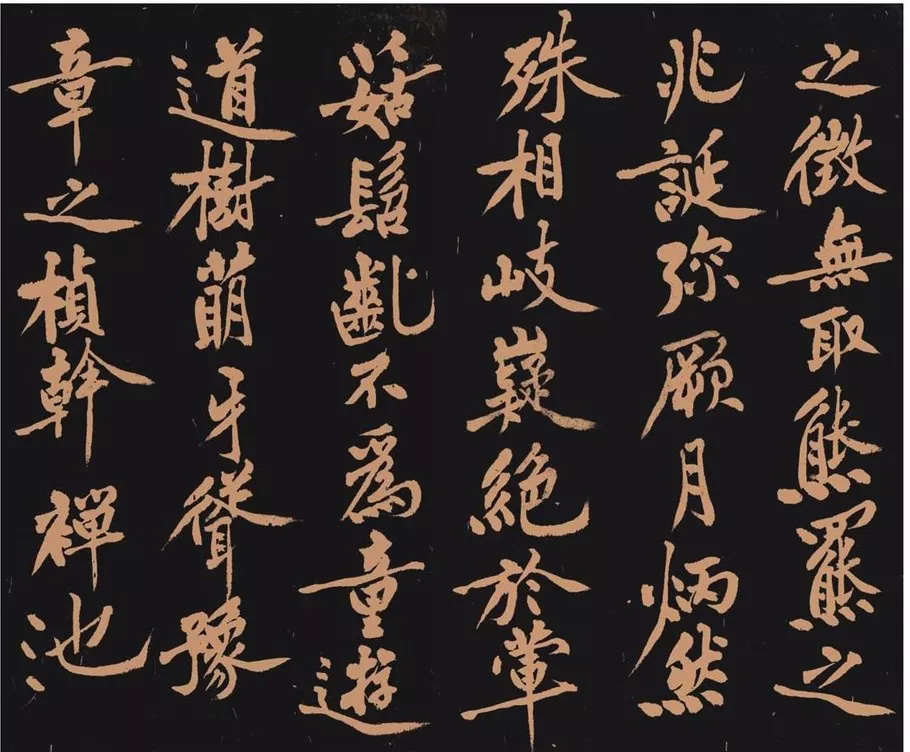 之徵無取熊羆之
兆誕弥厥月炳然
殊相岐嶷絕於葷
茹髫齔不為童遊
道樹萌牙聳豫
章之楨幹禪池